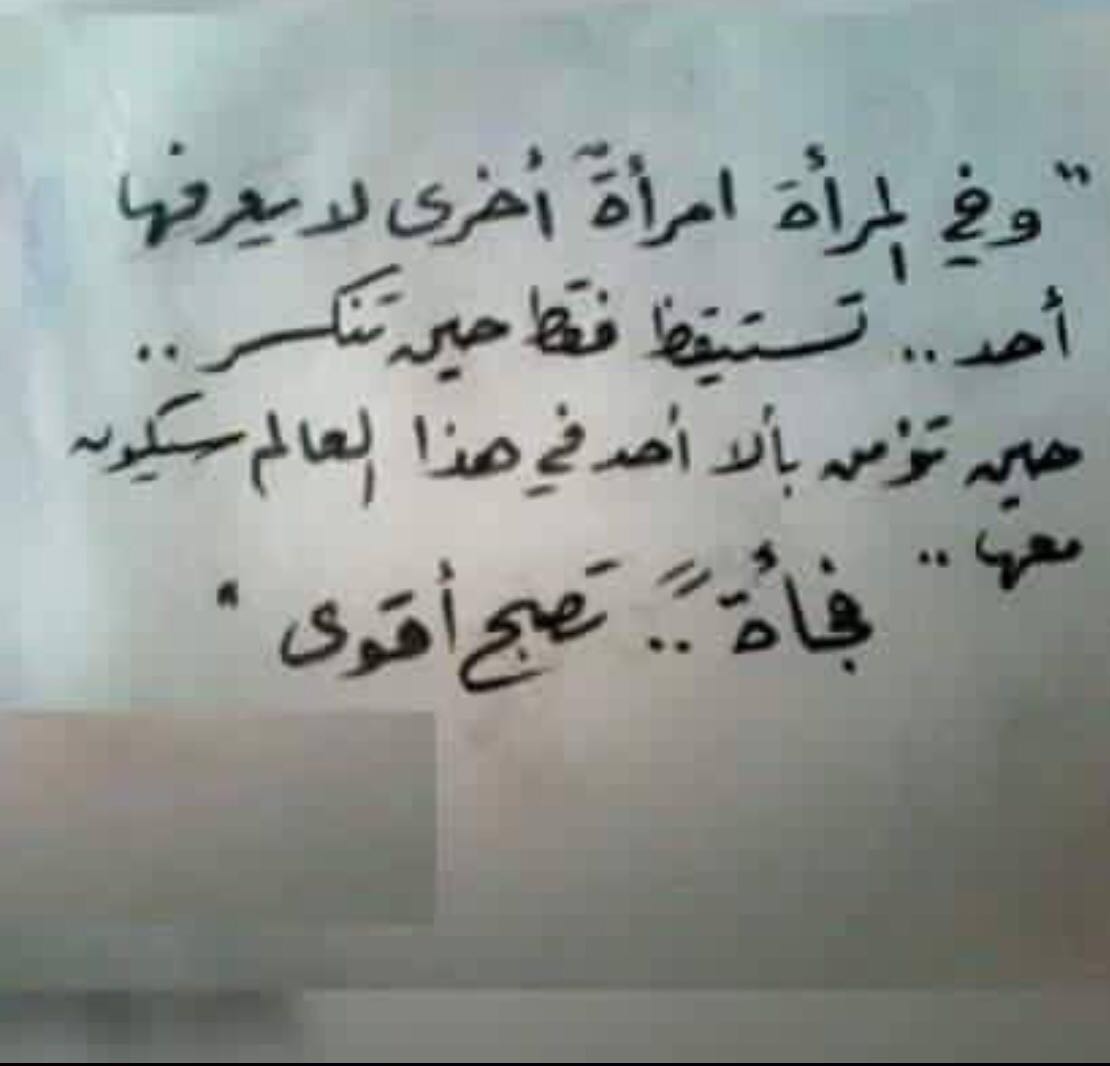 "وفي المرأة امرأةٌ أخرى لا يعرفها
أحد .. تستيقظ فقط حين تنكسر ..
حين تؤمن بألا أحد في هذا العالم سيكون
معها ..
فجأةً .. تصبح أقوى"